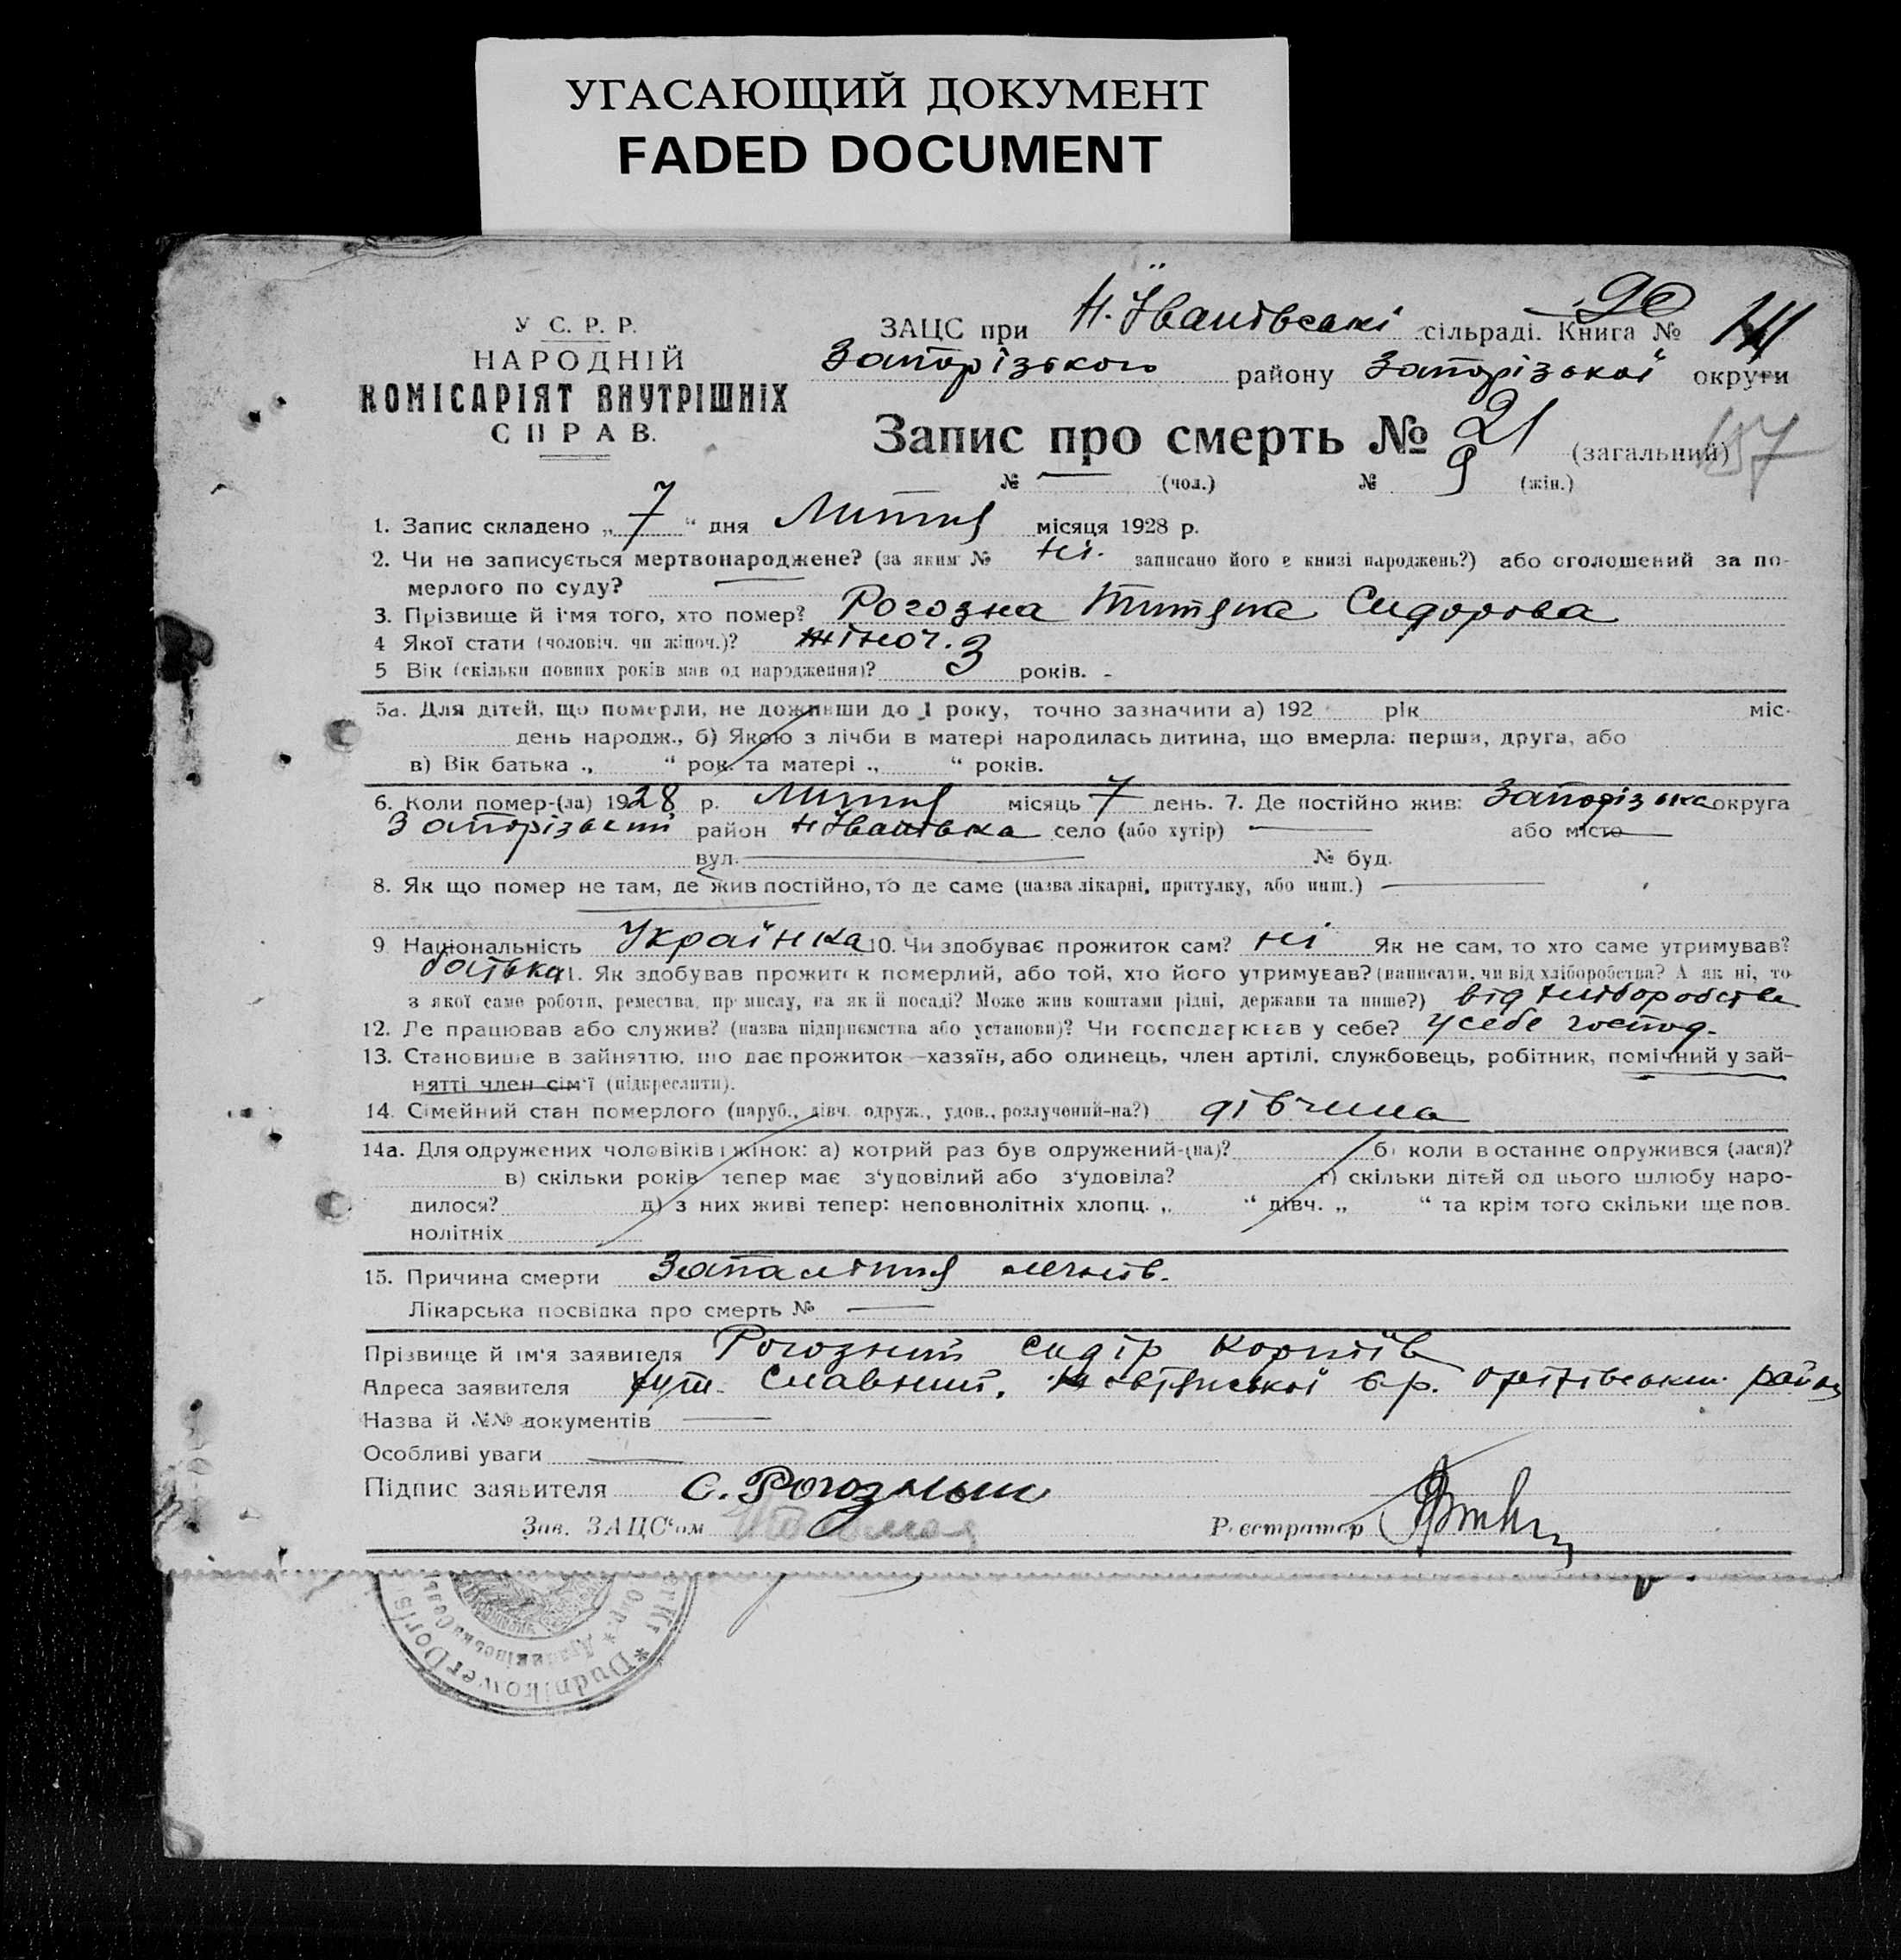 УГАСАЮЩИЙ ДОКУМЕНТ
FADED DOCUMENT
У С. Р. Р.
НАРОДНІЙ
КОМІСАРІЯТ ВНУТРІШНІХ
СПРАВ.
90
ЗАЦС при Н. Іванівські сільраді. Книга №
Запорізького району Запорізької округи
Запис про смерть № 21 (загальний) 157
№ — (чол.) № 9 (жін.)
1. Запис складено „7“ дня Липня місяця 1928 р.
2. Чи не записується мертвонароджене? (за яким № ні. записано його в книзі народжень?) або оголошений за по-
мерлого по суду?
3. Прізвище й ім'я того, хто помер? Рогозна Титяна Сидорова
4 Якої стати (чоловіч. чи жіноч.)? жіноч.
5 Вік (скільки повних років мав од народження)? 3 років.
5а. Для дітей, що померли, не доживши до 1 року, точно зазначити а) 192 рік міс.
день народж., б) Якою з лічби в матері народилась дитина, що вмерла: перша, друга, або
в) Вік батька „ “ рок. та матері „ “ років.
6. Коли помер-(ла) 1928 р. Липня місяць 7 день. 7. Де постійно жив: Запорізька округа
Запорізький район Н Іванівка село (або хутір) — або місто
вул. № буд.
8. Як що помер не там, де жив постійно, то де саме (назва лікарні, притулку, або инш.) —
9 Національність Українка 10. Чи здобуває прожиток сам? ні Як не сам, то хто саме утримував?
батька 11. Як здобував прожиток померлий, або той, хто його утримував? (написати, чи від хліборобства? А як ні, то
з якої саме роботи, ремества, промислу, на якій посаді? Може жив коштами рідні, держави та инше?) від хліборобства
12. Де працював або служив? (назва підприємства або установи)? Чи господарював у себе? у себе господ.
13. Становище в зайняттю, що дає прожиток—хазяїн, або одинець, член артілі, службовець, робітник, помічний у зай-
нятті член сім'ї (підкреслити).
14. Сімейний стан померлого (паруб., дівч. одруж., удов., розлучений-на?) дівчина
14а. Для одружених чоловіків і жінок: а) котрий раз був одружений-(на)? б) коли в останнє одружився (лася)?
в) скільки років тепер має з'удовілий або з'удовіла? г) скільки дітей од цього шлюбу наро-
дилося? д) з них живі тепер: неповнолітніх хлопц. „ “ дівч. „ “ та крім того скільки ще пов.
нолітніх
15. Причина смерти Запалення легків.
Лікарська посвідка про смерть № —
Прізвище й ім'я заявителя Рогозний Сидір Корніїв
Адреса заявителя хут. Славний, р. Оріхівський район
Назва й №№ документів —
Особливі уваги —
Підпис заявителя С. Рогозный
Зав. ЗАЦС'ом
Реєстратор
* Dudnikower Dorfs